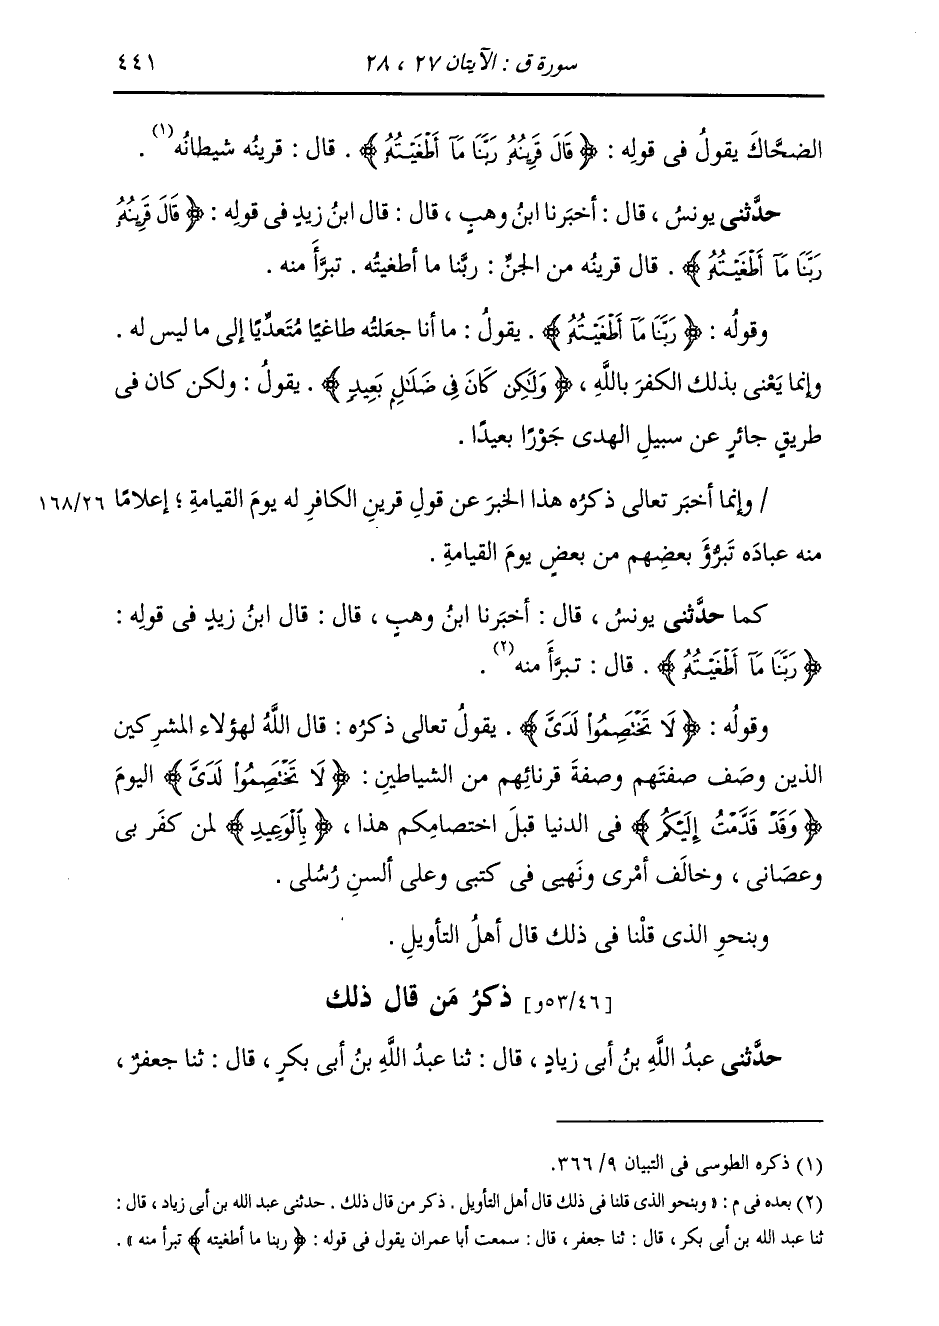 سورة ق : الآيتان ٢٧ ، ٢٨ ٤٤١
الضحَّاكَ يقولُ فى قولِه : ﴿ قَالَ قَرِينُهُۥ رَبَّنَا مَآ أَطْغَيْتُهُۥ ﴾ . قال : قرينُه شيطانُه(١) .
حدَّثنى يونسُ ، قال : أخبَرنا ابنُ وهبٍ ، قال : قال ابنُ زيدٍ فى قولِه : ﴿ قَالَ قَرِينُهُۥ
رَبَّنَا مَآ أَطْغَيْتُهُۥ ﴾ . قال قرينُه من الجنِّ : ربَّنا ما أطغيتُه . تبرَّأَ منه .
وقولُه : ﴿ رَبَّنَا مَآ أَطْغَيْتُهُۥ ﴾ . يقولُ : ما أنا جعَلتُه طاغيًا مُتعدِّيًا إلى ما ليس له .
وإنما يَعْنى بذلك الكفرَ باللَّهِ ، ﴿ وَلَٰكِن كَانَ فِى ضَلَٰلٍۭ بَعِيدٍ ﴾ . يقولُ : ولكن كان فى
طريقٍ جائرٍ عن سبيلِ الهدى جَوْرًا بعيدًا .
/ وإنما أخبَر تعالى ذكرُه هذا الخبرَ عن قولِ قرينِ الكافرِ له يومَ القيامةِ ؛ إعلامًا ١٦٨/٢٦
منه عبادَه تَبرُّؤَ بعضِهم من بعضٍ يومَ القيامةِ .
كما حدَّثنى يونسُ ، قال : أخبَرنا ابنُ وهبٍ ، قال : قال ابنُ زيدٍ فى قولِه :
﴿ رَبَّنَا مَآ أَطْغَيْتُهُۥ ﴾ . قال : تبرَّأَ منه(٢) .
وقولُه : ﴿ لَا تَخْتَصِمُوا۟ لَدَىَّ ﴾ . يقولُ تعالى ذكرُه : قال اللَّهُ لهؤلاء المشركين
الذين وصَف صفتَهم وصفةَ قرنائِهم من الشياطينِ : ﴿ لَا تَخْتَصِمُوا۟ لَدَىَّ ﴾ اليومَ
﴿ وَقَدْ قَدَّمْتُ إِلَيْكُم ﴾ فى الدنيا قبلَ اختصامِكم هذا ، ﴿ بِٱلْوَعِيدِ ﴾ لمن كفَر بى
وعصَانى ، وخالَف أمْرى ونَهيى فى كتبى وعلى ألسنِ رُسُلى .
وبنحوِ الذى قلْنا فى ذلك قال أهلُ التأويلِ .
[٥٣/٤٦و] ذكرُ مَن قال ذلك
حدَّثنى عبدُ اللَّهِ بنُ أبى زيادٍ ، قال : ثنا عبدُ اللَّهِ بنُ أبى بكرٍ ، قال : ثنا جعفرٌ ،
(١) ذكره الطوسى فى التبيان ٩/ ٣٦٦.
(٢) بعده فى م : « وبنحو الذى قلنا فى ذلك قال أهل التأويل . ذكر من قال ذلك . حدثنى عبد الله بن أبى زياد ، قال :
ثنا عبد الله بن أبى بكر ، قال : ثنا جعفر ، قال : سمعت أبا عمران يقول فى قوله : ﴿ ربنا ما أطغيته ﴾ تبرأ منه » .